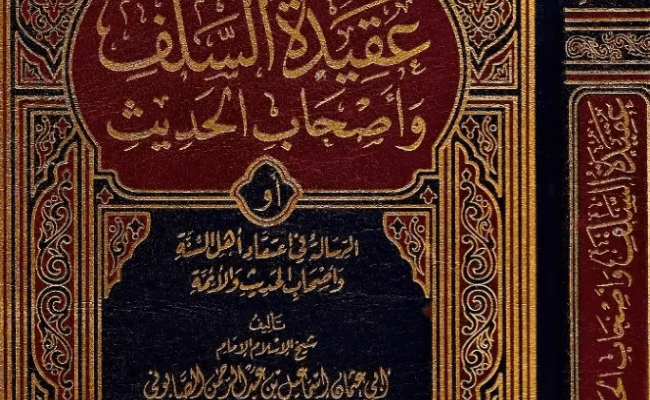 عقيدة السلف
وأصحاب الحديث
أو
الرسالة في اعتقاد أهل السنة
وأصحاب الحديث والأئمة
تأليف
شيخ الإسلام الإمام
أبي عثمان إسماعيل بن عبد الرحمن الصابوني
عقيدة السلف وأصحاب